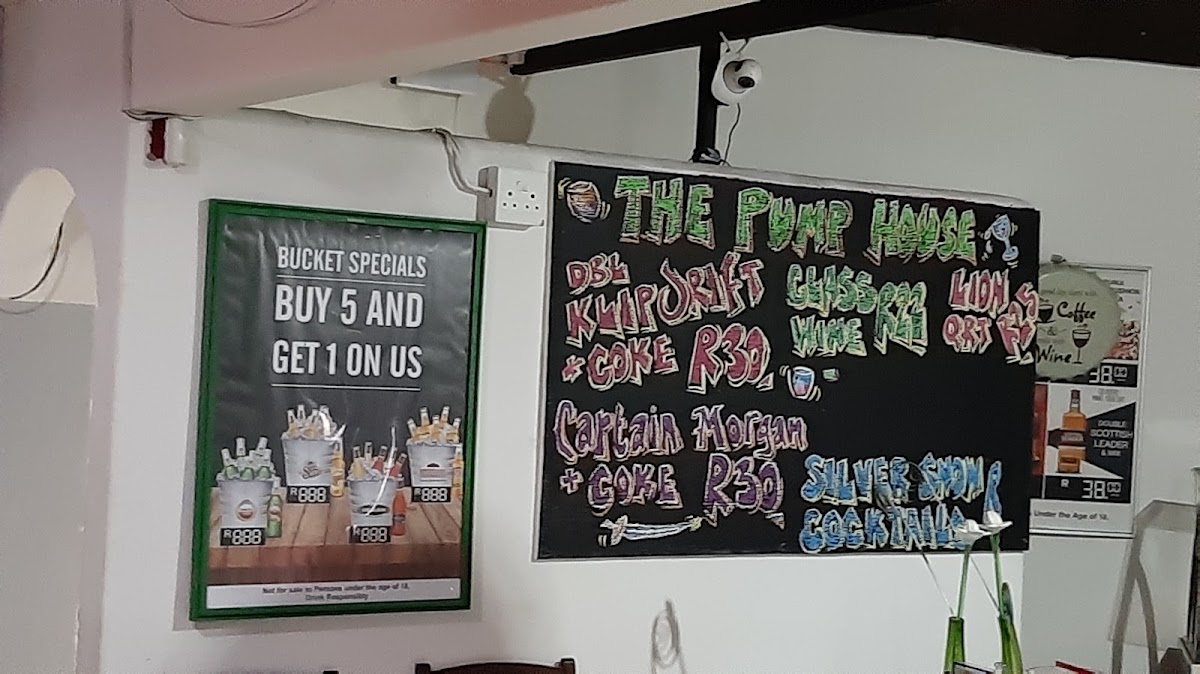 BUCKET SPECIALS
BUY 5 AND
GET 1 ON US
R888
R888
R888
R888
Not for sale to Persons under the age of 18.
Drink Responsibly
THE PUMP HOUSE
DBL
KLIPDRIFT
+ COKE R30
GLASS
WINE R22
LION
QRT
Captain Morgan
+ COKE R30
SILVER SNOW
COCKTAILS
Coffee
&
Wine
38.00
DOUBLE
SCOTTISH
LEADER
R 38.00
Under the Age of 18.